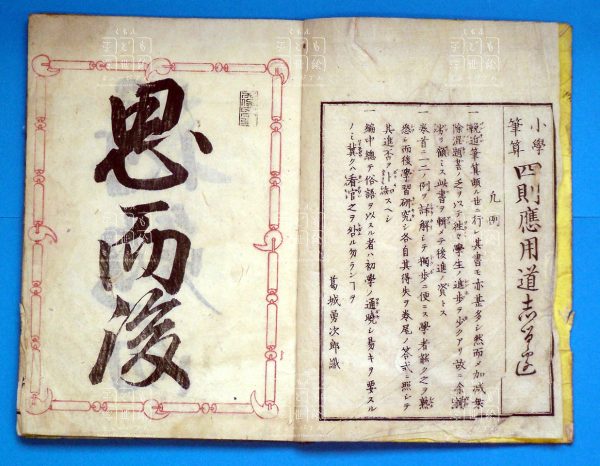 小學
筆算
四則應用道志るべ
凡例
一 輓近筆算頗ル世ニ行レ其書モ亦甚多シ然而メ加減乗
除混題書ノ乏キヲ以テ往々學生ノ進歩ヲ少クアリ故ニ余
ヲ顧ミス此書ヲ輯テ後進ノ資トス
一 巻首一二ノ例ヲ詳解シテ獨歩ニ便ニス學者能ク之ヲ熟
悉シ而後學習研究シ各自其得失ヲ巻尾ノ答式ニ照シテ
其進否ヲ知スヘシ
一 編中總テ俗語ヲ以スル者ハ初學ノ通曉シ易キヲ要スル
ノミ冀クハ看官之ヲ咎ル勿ランヿヲ
葛城勇次郎識
思而後